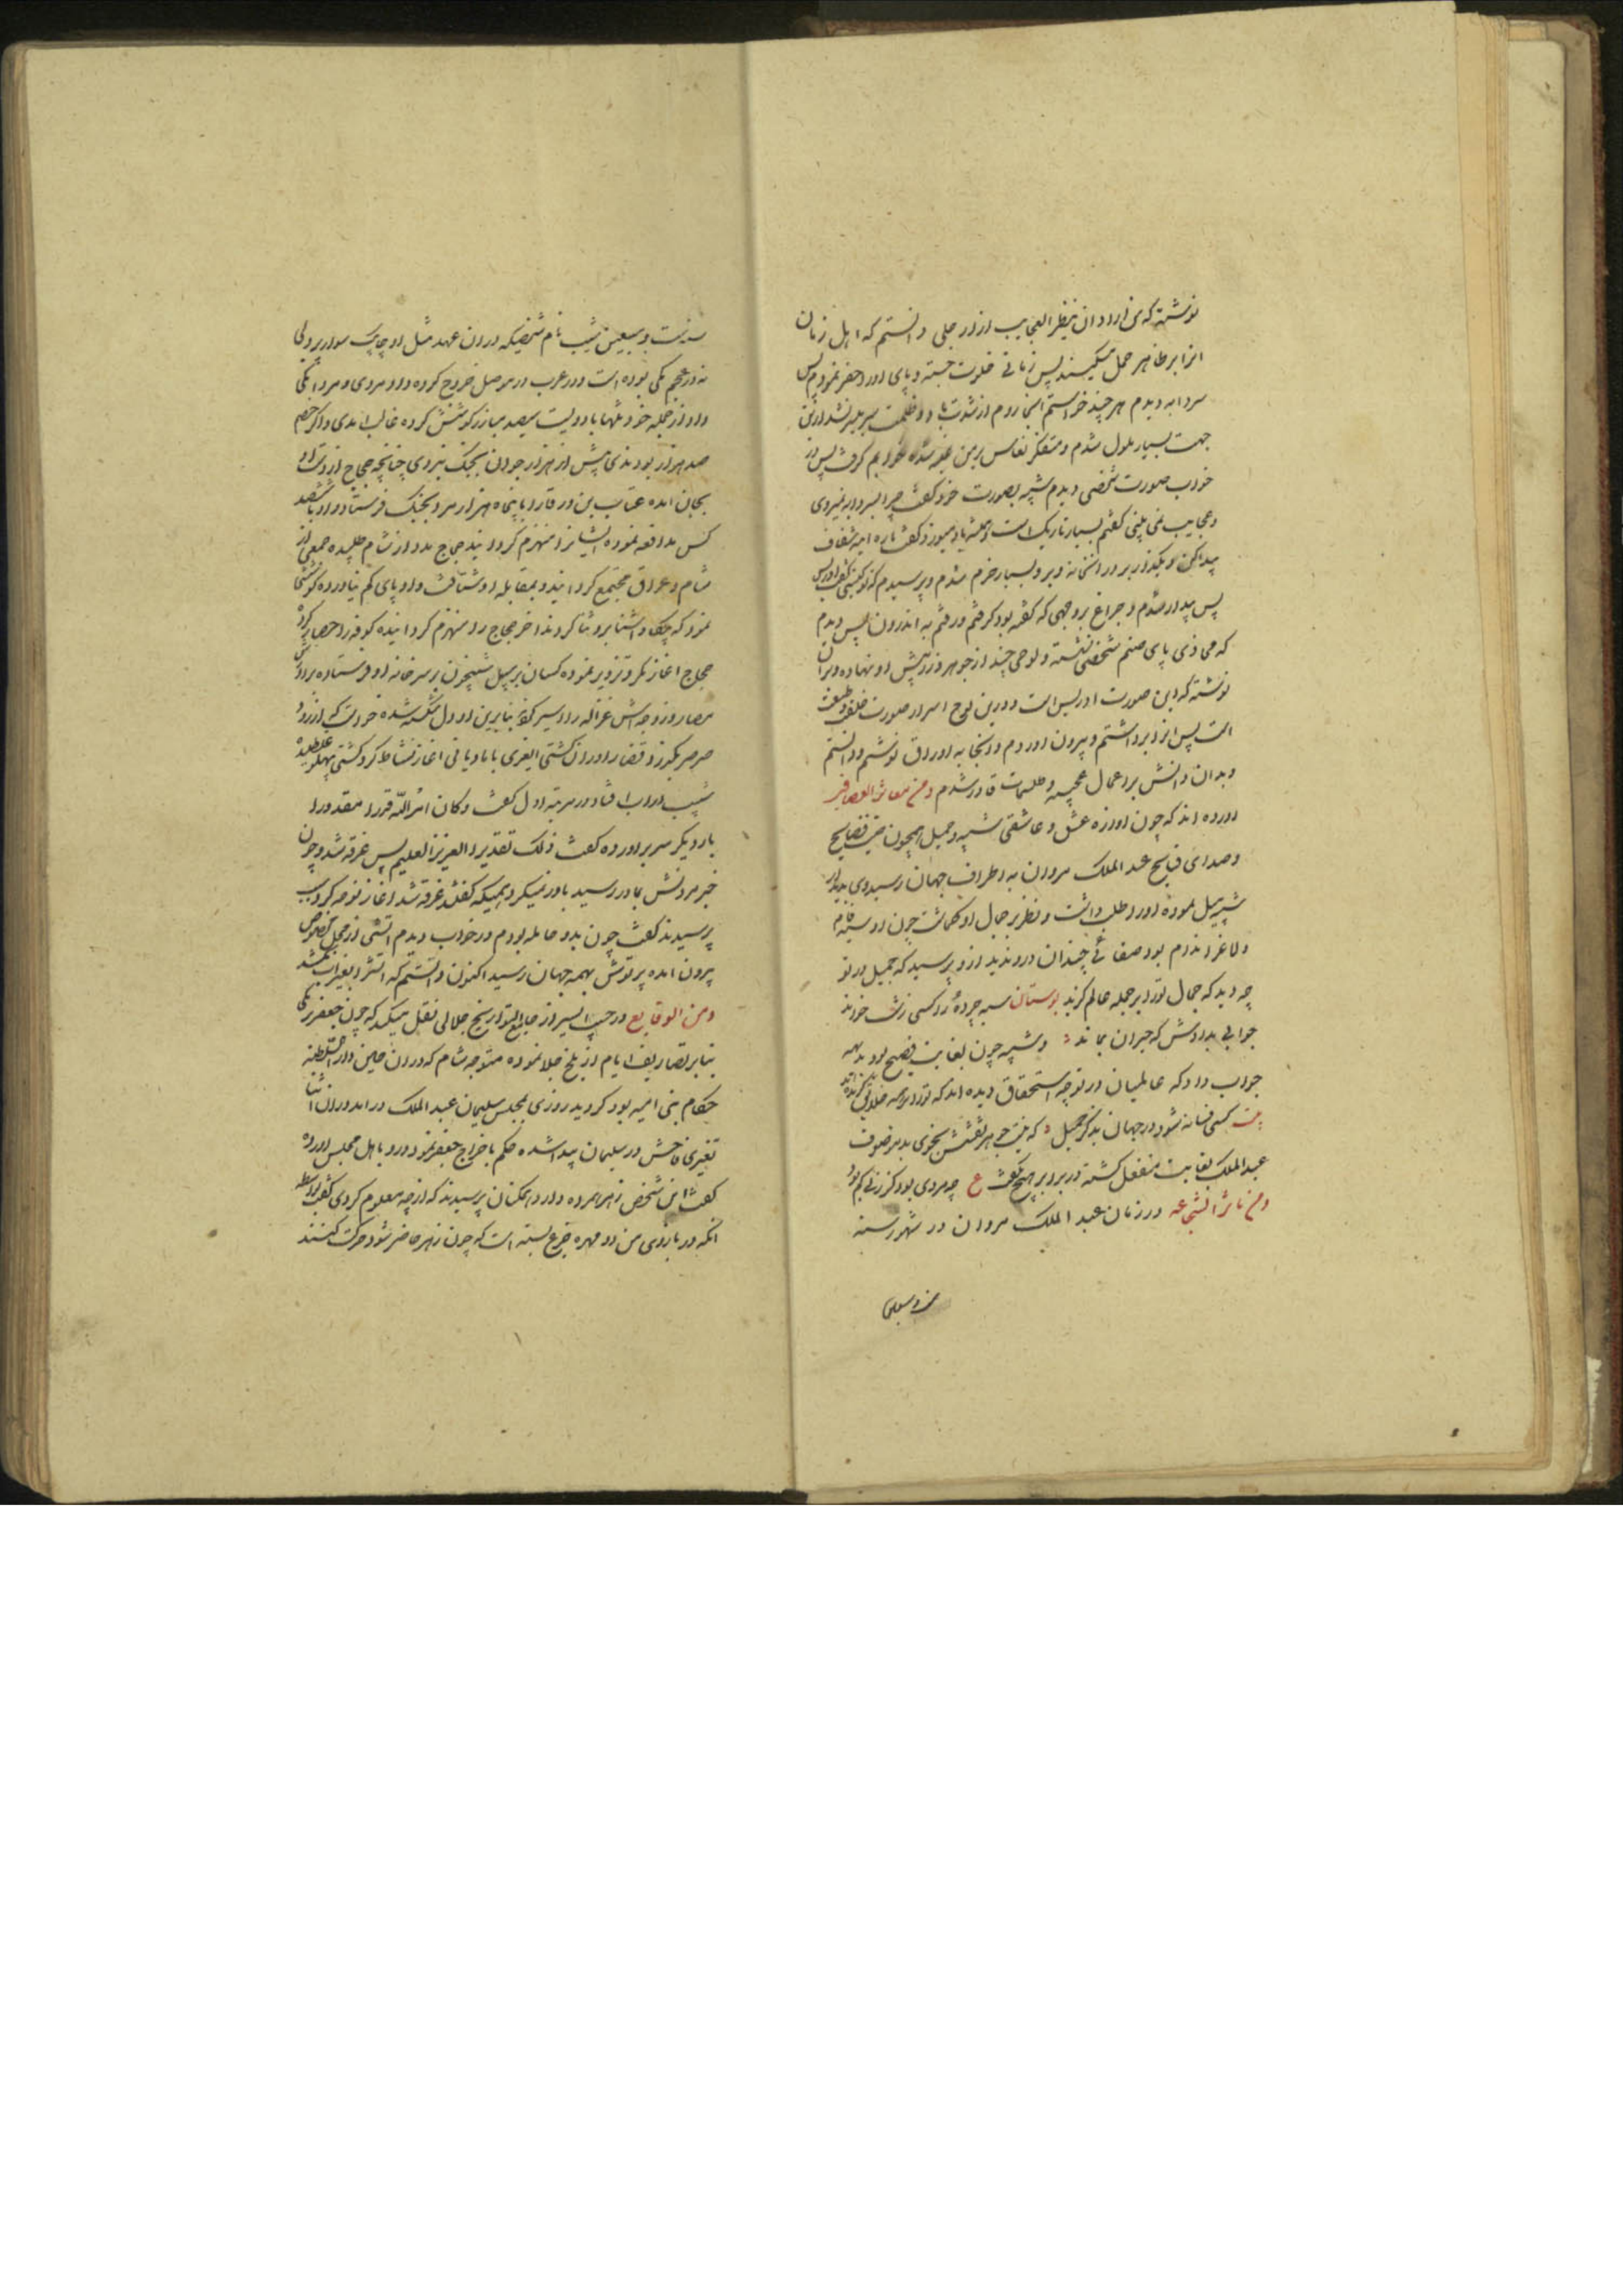 نوشته که من اراد ان ینظر العجایب از در جلی دانستم که اهل زمان
انرا بر ظاهر حمل میکنند پس زمانی خلوت جسته و پای اورا حفر نمودم پس
سردابه دیدم هر چند خواستم انجا روم از شدت باد و ظلمت میسر نشد ازین
جهت بسیار ملول شدم و متفکر نعاس بر من غلبه شده خوابم گرفت پس در
خواب صورت شخصی دیدم شبیه بصورت خود گفت چرا بسردابه نمیروی
و عجایب نمی بینی گفتم بسیار تاریک است و همیشه باد میوزد گفت
پیدا کن و بگذار بر در انخانه و برو بسیار خرم شدم و پرسیدم که تو کیستی گفت
پس بیدار شدم و چراغ بر وجهی که گفته بود گرفتم و رفتم به اندرون پس دیدم
که محاذی پای صنم شخصی نشسته و لوحی چند از جوهر زرد پیش او نهاده و بران
نوشته که این صورت ادریس است و درین لوح اسرار صورت خلقت و طبیعت
است پس انرا برداشتم و بیرون اوردم و انجا به اوراق نوشتم و دانستم
و بدان دانش بر اعمال عجیبه و طلسمات قادر شدم و من معاثر العصافیر
اورده اند که چون اوازه عشق و عاشقی شبیه و جمیل همچون صیت فضایح
و صدای قبایح عبد الملک مروان به اطراف جهان رسید وی بدیدار
شبیه میل نموده اورا طلب داشت و نظر بر جمال او گماشت چون او سیه فام
و لاغر اندام بود صفائی چندان درو ندید ازو پرسید که جمیل در تو
چه دید که جمال تورا بر جمله عالم گزید بوستان سیه چرده را کسی زشت خواند
جوابی بدادش که حیران بماند و شبیه چون بغایت فصیح بود بدیهه
جواب داد که عالمیان در تو چه استحقاق دیده اند که تورا بر همه خلایق گزیده اند
بیت کسی فسانه شود در جهان بذکر جمیل که نیست جوهر نفسش بخوی بد موصوف
عبد الملک بغایت منفعل گشته در برابر هیچ نگفت ع چه مردی بود کز زنی کم بود
و من ماثر الشجاعه در زمان عبد الملک مروان در شهور سنه
ست و سبعین
سنه ست و سبعین شبیب نام شخصیکه دران عهد مثل او چابک سوار پردلی
نه در عجم یکی بوده است و در عرب در موصل خروج کرده داد مردی و مردانگی
داد از جمله خود تنها با دویست سیصد مبارز کوشش کرده غالب امدی و اگر خصم
صد هزار بودندی بیش از هزار جوان بجنگ نبردی چنانچه حجاج از دست او
بجان امده عتاب بن ورقا را با پنجاه هزار مرد بجنگ فرستاد و او با ششصد
کس مدافعه نموده ایشانرا منهزم گردانید حجاج مدد از شام طلبیده جمعی از
شام و عراق مجتمع گردانید و بمقابله او شتافت و او پای کم نیاورده کوششی
نمود که چکاد اشنا برو ثنا کردند اخر حجاج را منهزم گردانیده کوفه را حصار کرد
حجاج اغاز مکر و تزویر نموده کسان بر سبیل شبیخون بر سر خانه او فرستاده برادرش
مصاد و زوجه اش غزاله را دستگیر کرد بنابرین او دل شکسته شده خواست که از رود
صرصر بگذرد قضا را دران کشتی ایغری با مادیانی اغاز نشاط کرد کشتی بپهلو غلطیده
شبیب دراب افتاد در مرتبه اول گفت و کان امر الله قدرا مقدورا
بار دیگر سر براورده گفت ذلک تقدیر العزیز العلیم پس غرقه شد و چون
خبر مردنش بمادر رسید باور نمیکرد همینکه گفتند غرقه شد اغاز نوحه کرد سبب
پرسیدند گفت چون بدو حامله بودم در خواب دیدم اتشی از محل مخصوص
بیرون امده پرتوش بهمه جهان رسید اکنون دانستم که اتش را بغیر اب نکشد
و من الوقایع در حبیب السیر از جامع التواریخ جلالی نقل میکند که چون جعفر برمکی
بنابر تصاریف ایام از بلخ جلا نموده متوجه شام که دران حین دار السلطنه
حکام بنی امیه بود گردید روزی بمجلس سلیمان عبد الملک درامد دران اثنا
تغیری فاحش در سلیمان پیدا شده حکم باخراج جعفر نمود و رو باهل مجلس اورده
گفت این شخص زهر همراه دارد ایمکنان پرسیدند که از چه معلوم کردی گفت بواسطه
انکه در بازوی من دو مهره جزع بسته است که چون زهر حاضر شود حرکت کنند